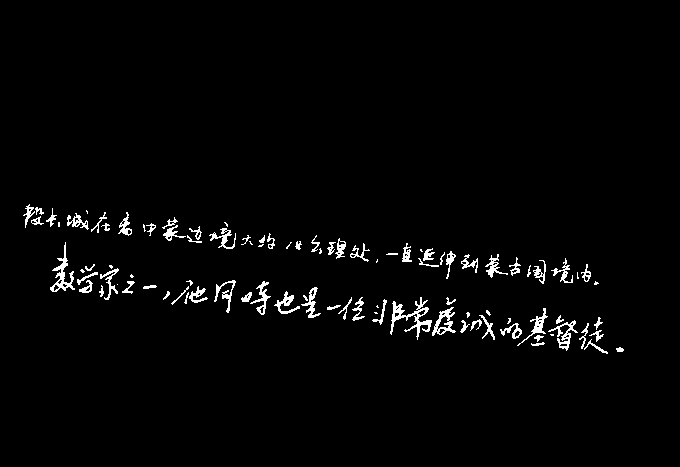 段长城在离中蒙边境大约18公里处，一直延伸到蒙古国境内。
数学家之一，他同时也是一位非常虔诚的基督徒。